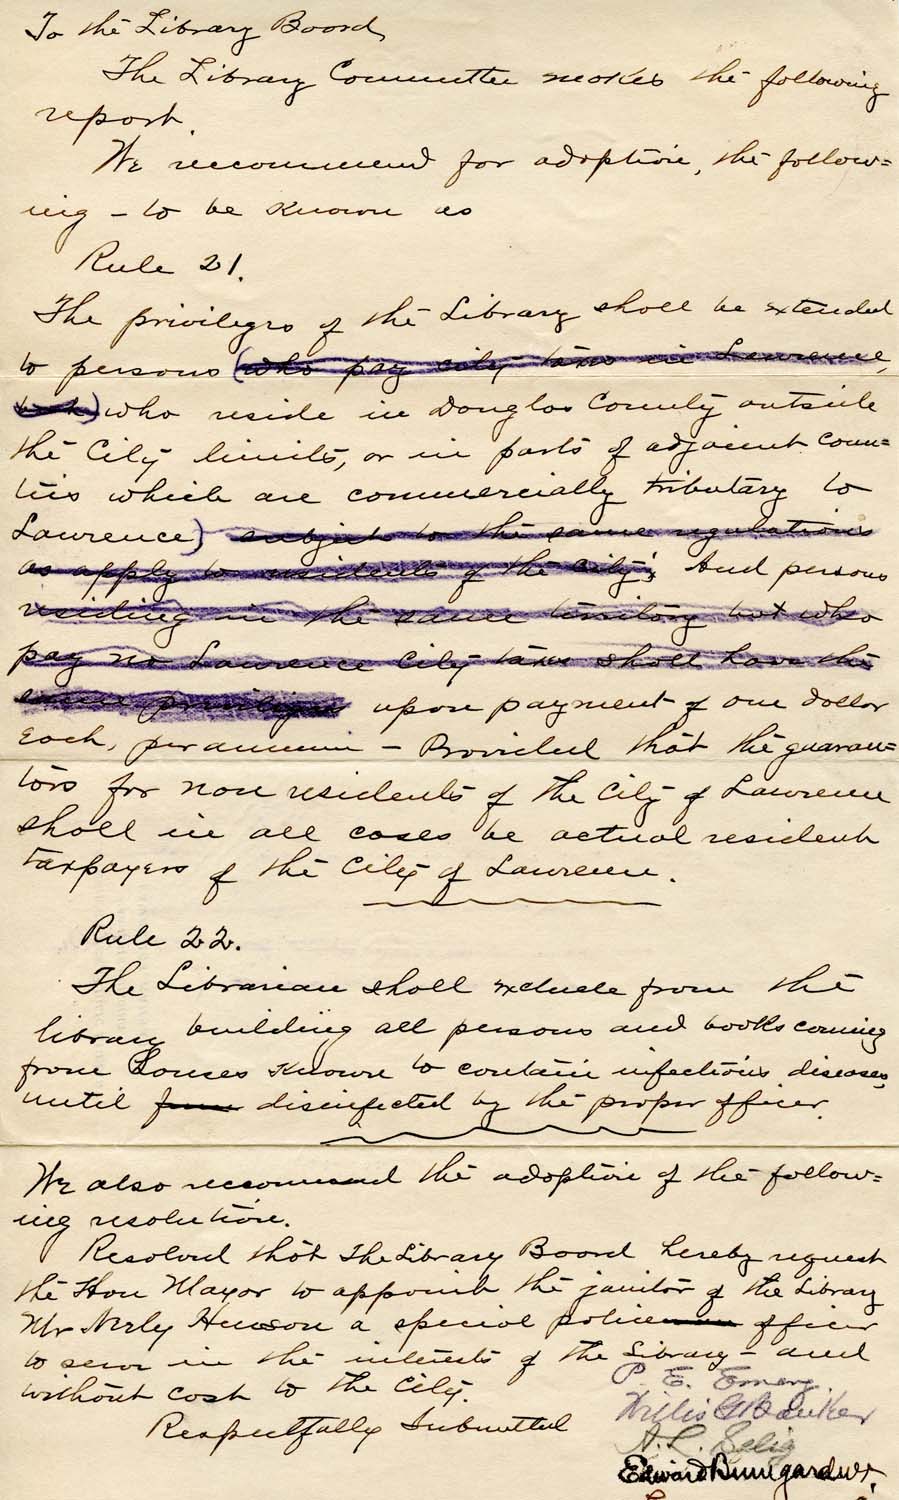 To the Library Board,
The Library Committee makes the following
report.
We recommend for adoption, the follow=
ing – to be known as
Rule 21.
The privileges of the Library shall be extended
to persons (who pay city taxes in Lawrence,
but) who reside in Douglas County outside
the City limits, or in parts of adjacent coun=
ties which are commercially tributary to
Lawrence) subject to the same regulations
as apply to residents of the City; And persons
residing in the same territory but who
pay no Lawrence City taxes shall have the
same privileges upon payment of one dollar
Each, per annum – Provided that the guaran=
tors for non residents of the City of Lawrence
shall in all cases be actual resident
taxpayers of the City of Lawrence.
Rule 22.
The Librarian shall exclude from the
library building all persons and books coming
from houses known to contain infectious diseases,
until disinfected by the proper officer.
We also recommend the adoption of the follow=
ing resolution.
Resolved that The Library Board hereby request
the Hon Mayor to appoint the janitor of the Library
Mr a special police officer
to serve in the interests of the Library – and
without cost to the City.
Respectfully Submitted
P. E. Emery
Willis
A. L. Selig
Edward Bumgardner.